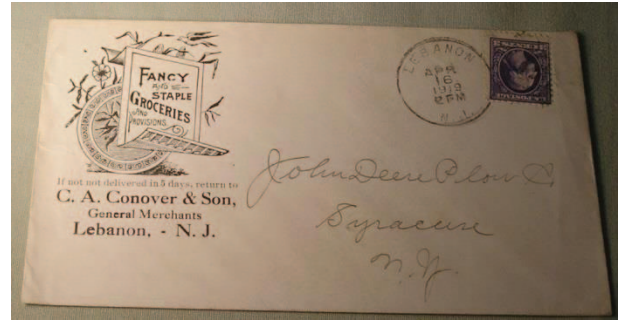 FANCY
STAPLE
GROCERIES
AND
PROVISIONS
If not delivered in 5 days, return to
C. A. Conover & Son,
General Merchants
Lebanon, - N. J.
LEBANON
APR
16
1919
2 PM
N. J.
John Deere Plow C.
Syracuse
N. Y.